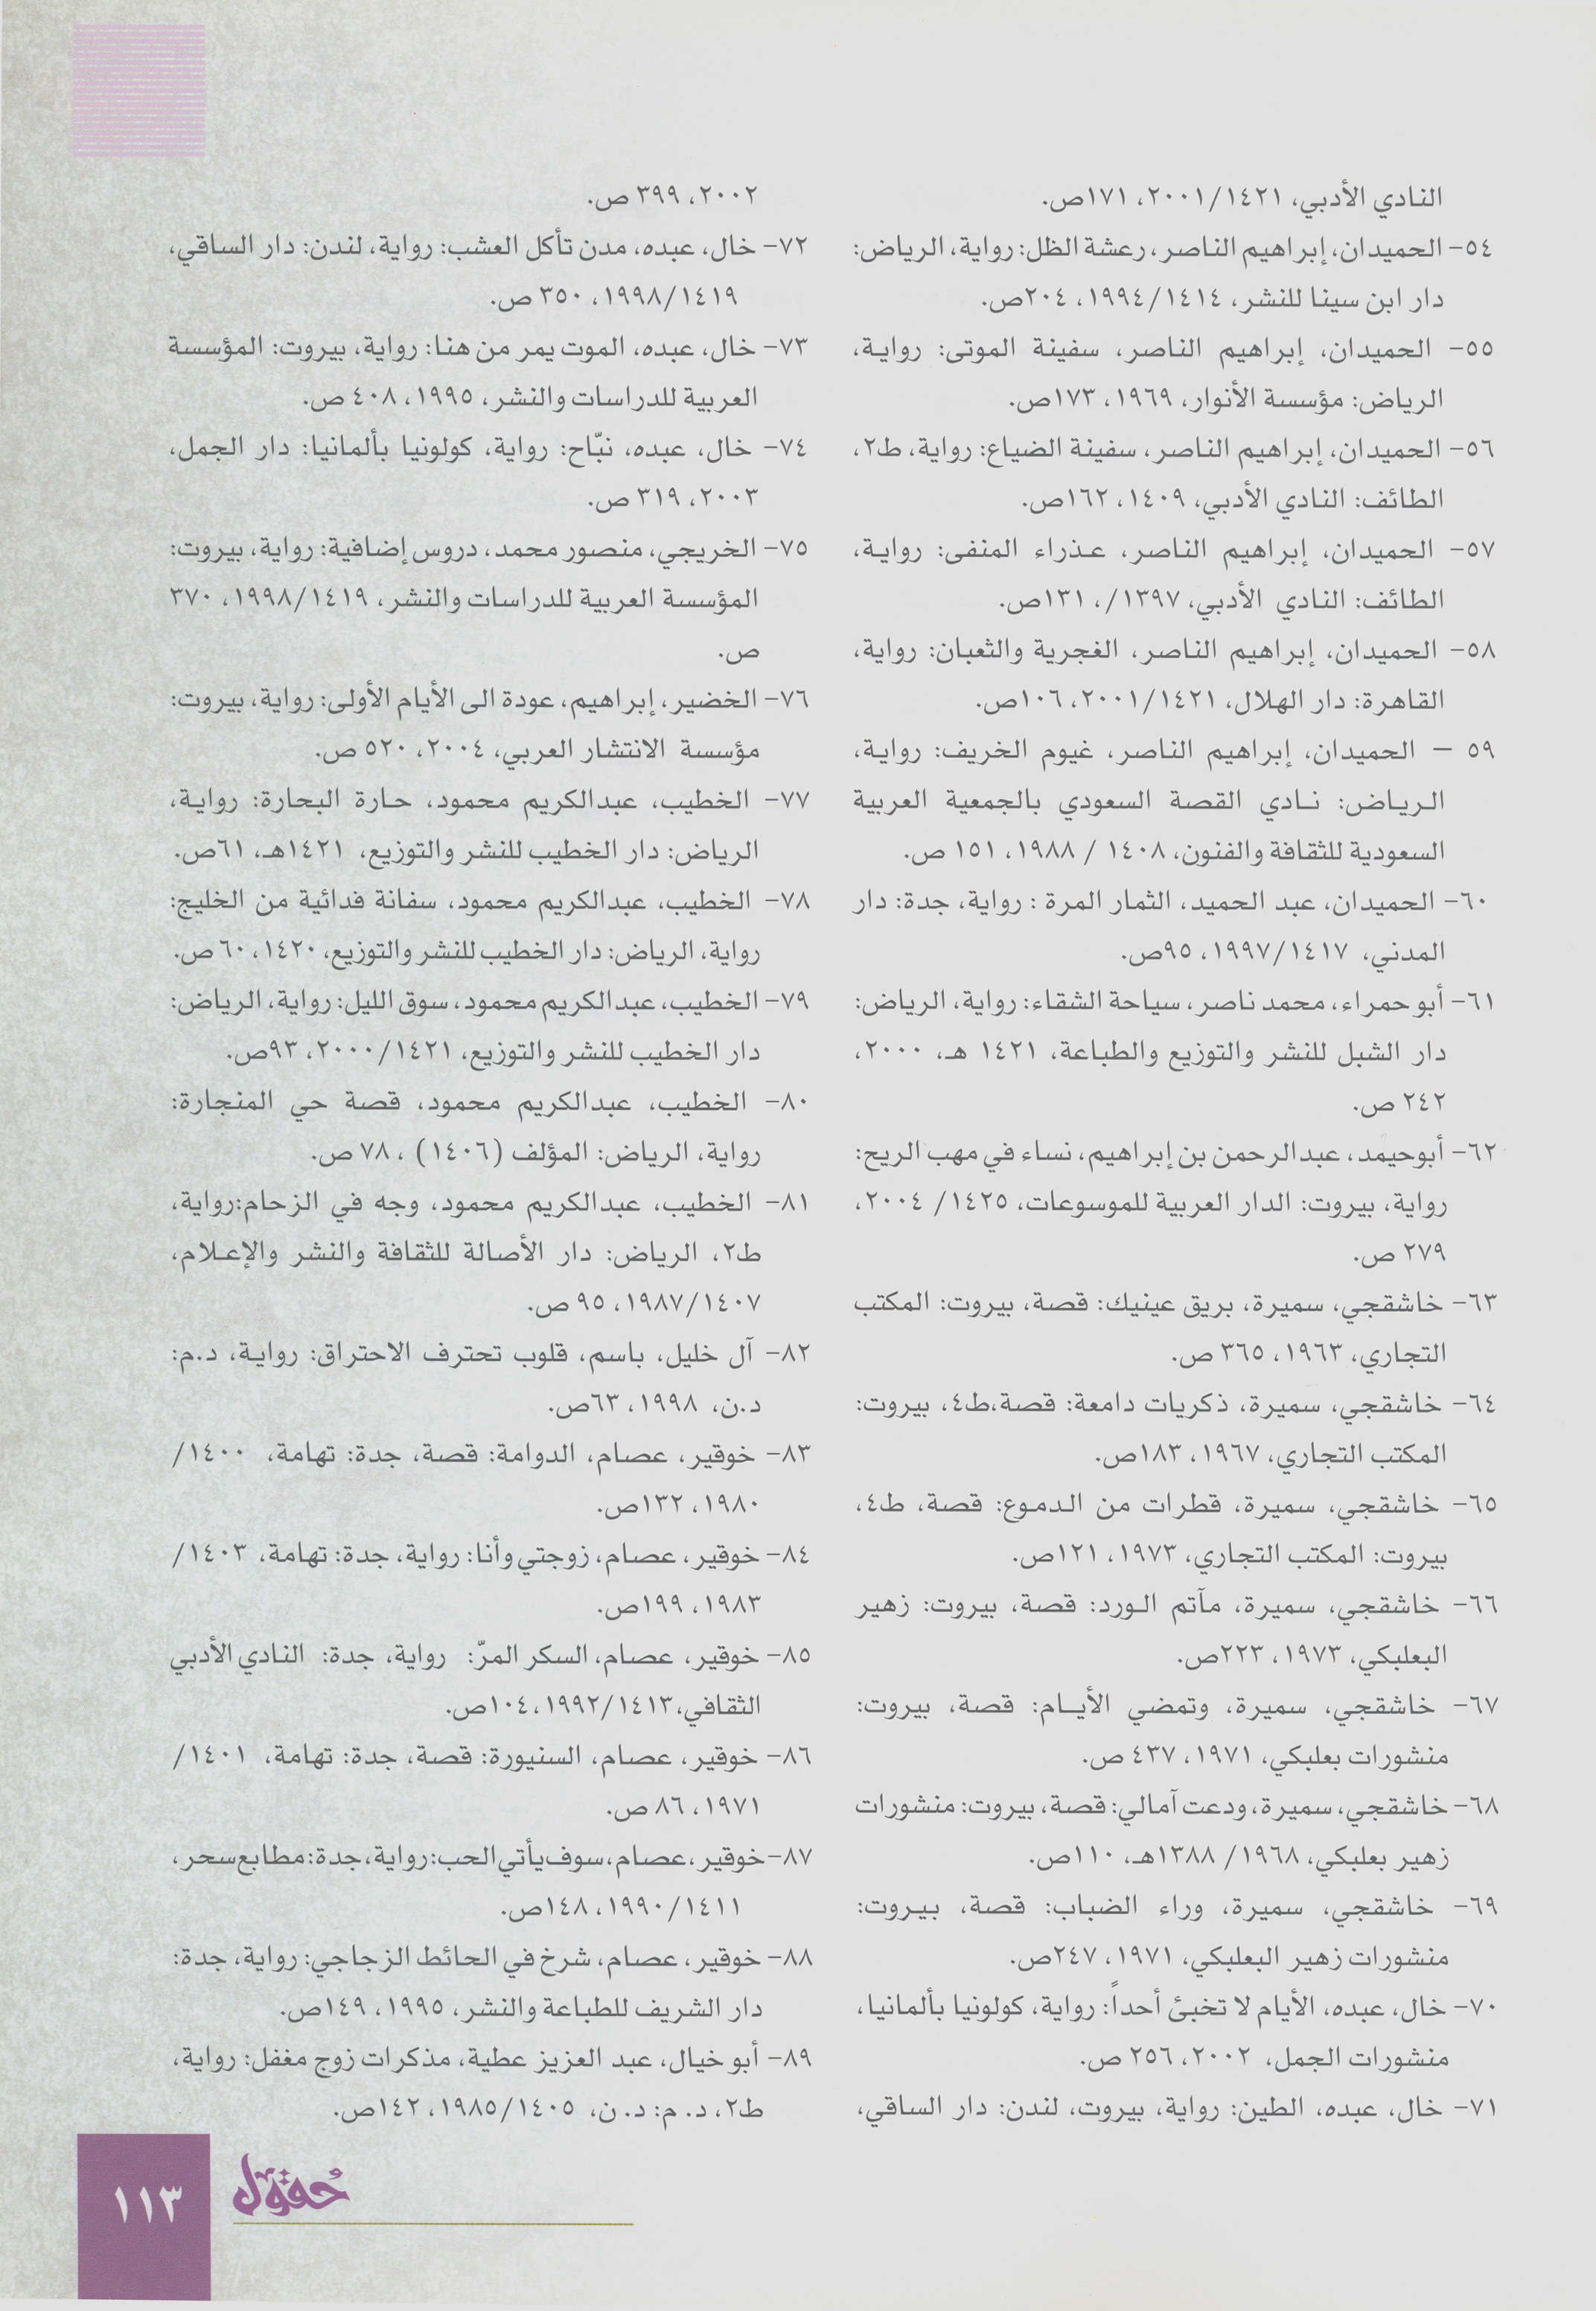 النادي الأدبي، ٢٠٠١/١٤٢١، ١٧١ص.
٥٤- الحميدان، إبراهيم الناصر، رعشة الظل: رواية، الرياض:
دار ابن سينا للنشر، ١٩٩٤/١٤١٤، ٢٠٤ص.
٥٥- الحميدان، إبراهيم الناصر، سفينة الموتى: رواية،
الرياض: مؤسسة الأنوار، ١٩٦٩، ١٧٣ص.
٥٦- الحميدان، إبراهيم الناصر، سفينة الضياع: رواية، ط٢،
الطائف: النادي الأدبي، ١٤٠٩، ١٦٢ص.
٥٧- الحميدان، إبراهيم الناصر، عذراء المنفى: رواية،
الطائف: النادي الأدبي، ١٣٩٧/، ١٣١ص.
٥٨- الحميدان، إبراهيم الناصر، الغجرية والثعبان: رواية،
القاهرة: دار الهلال، ٢٠٠١/١٤٢١، ١٠٦ص.
٥٩ – الحميدان، إبراهيم الناصر، غيوم الخريف: رواية،
الرياض: نادي القصة السعودي بالجمعية العربية
السعودية للثقافة والفنون، ١٤٠٨ / ١٩٨٨، ١٥١ ص.
٦٠- الحميدان، عبد الحميد، الثمار المرة : رواية، جدة: دار
المدني، ١٩٩٧/١٤١٧، ٩٥ص.
٦١- أبو حمراء، محمد ناصر، سياحة الشقاء: رواية، الرياض:
دار الشبل للنشر والتوزيع والطباعة، ١٤٢١ هـ، ٢٠٠٠،
٢٤٢ ص.
٦٢- أبوحيمد، عبدالرحمن بن إبراهيم، نساء في مهب الريح:
رواية، بيروت: الدار العربية للموسوعات، ١٤٢٥/ ٢٠٠٤،
٢٧٩ ص.
٦٣- خاشقجي، سميرة، بريق عينيك: قصة، بيروت: المكتب
التجاري، ١٩٦٣، ٣٦٥ ص.
٦٤- خاشقجي، سميرة، ذكريات دامعة: قصة،ط٤، بيروت:
المكتب التجاري، ١٩٦٧، ١٨٣ص.
٦٥- خاشقجي، سميرة، قطرات من الدموع: قصة، ط٤،
بيروت: المكتب التجاري، ١٩٧٣، ١٢١ص.
٦٦- خاشقجي، سميرة، مآتم الورد: قصة، بيروت: زهير
البعلبكي، ١٩٧٣، ٢٢٣ص.
٦٧- خاشقجي، سميرة، وتمضي الأيام: قصة، بيروت:
منشورات بعلبكي، ١٩٧١، ٤٣٧ ص.
٦٨- خاشقجي، سميرة، ودعت آمالي: قصة، بيروت: منشورات
زهير بعلبكي، ١٩٦٨/ ١٣٨٨هـ، ١١٠ص.
٦٩- خاشقجي، سميرة، وراء الضباب: قصة، بيروت:
منشورات زهير البعلبكي، ١٩٧١، ٢٤٧ص.
٧٠- خال، عبده، الأيام لا تخبئ أحداً: رواية، كولونيا بألمانيا،
منشورات الجمل، ٢٠٠٢، ٢٥٦ ص.
٧١- خال، عبده، الطين: رواية، بيروت، لندن: دار الساقي،
٢٠٠٢، ٣٩٩ ص.
٧٢- خال، عبده، مدن تأكل العشب: رواية، لندن: دار الساقي،
١٩٩٨/١٤١٩، ٣٥٠ ص.
٧٣- خال، عبده، الموت يمر من هنا: رواية، بيروت: المؤسسة
العربية للدراسات والنشر، ١٩٩٥، ٤٠٨ ص.
٧٤- خال، عبده، نبّاح: رواية، كولونيا بألمانيا: دار الجمل،
٢٠٠٣، ٣١٩ ص.
٧٥- الخريجي، منصور محمد، دروس إضافية: رواية، بيروت:
المؤسسة العربية للدراسات والنشر، ١٩٩٨/١٤١٩، ٣٧٠
ص.
٧٦- الخضير، إبراهيم، عودة الى الأيام الأولى: رواية، بيروت:
مؤسسة الانتشار العربي، ٢٠٠٤، ٥٢٠ ص.
٧٧- الخطيب، عبدالكريم محمود، حارة البحارة: رواية،
الرياض: دار الخطيب للنشر والتوزيع، ١٤٢١هـ، ٦١ص.
٧٨- الخطيب، عبدالكريم محمود، سفانة فدائية من الخليج:
رواية، الرياض: دار الخطيب للنشر والتوزيع، ١٤٢٠، ٦٠ ص.
٧٩- الخطيب، عبدالكريم محمود، سوق الليل: رواية، الرياض:
دار الخطيب للنشر والتوزيع، ٢٠٠٠/١٤٢١، ٩٣ص.
٨٠- الخطيب، عبدالكريم محمود، قصة حي المنجارة:
رواية، الرياض: المؤلف (١٤٠٦) ، ٧٨ ص.
٨١- الخطيب، عبدالكريم محمود، وجه في الزحام:رواية،
ط٢، الرياض: دار الأصالة للثقافة والنشر والإعلام،
١٩٨٧/١٤٠٧، ٩٥ ص.
٨٢- آل خليل، باسم، قلوب تحترف الاحتراق: رواية، د.م:
د.ن، ١٩٩٨، ٦٣ص.
٨٣- خوقير، عصام، الدوامة: قصة، جدة: تهامة، ١٤٠٠/
١٩٨٠، ١٣٢ص.
٨٤- خوقير، عصام، زوجتي وأنا: رواية، جدة: تهامة، ١٤٠٣/
١٩٨٣، ١٩٩ص.
٨٥- خوقير، عصام، السكر المرّ: رواية، جدة: النادي الأدبي
الثقافي، ١٩٩٢/١٤١٣، ١٠٤ص.
٨٦- خوقير، عصام، السنيورة: قصة، جدة: تهامة، ١٤٠١/
١٩٧١، ٨٦ ص.
٨٧- خوقير، عصام، سوف يأتي الحب: رواية، جدة: مطابع سحر،
١٩٩٠/١٤١١، ١٤٨ص.
٨٨- خوقير، عصام، شرخ في الحائط الزجاجي: رواية، جدة:
دار الشريف للطباعة والنشر، ١٩٩٥، ١٤٩ص.
٨٩- أبو خيال، عبد العزيز عطية، مذكرات زوج مغفل: رواية،
ط٢، د. م: د. ن، ١٩٨٥/١٤٠٥، ١٤٢ص.
حُقول
١١٣